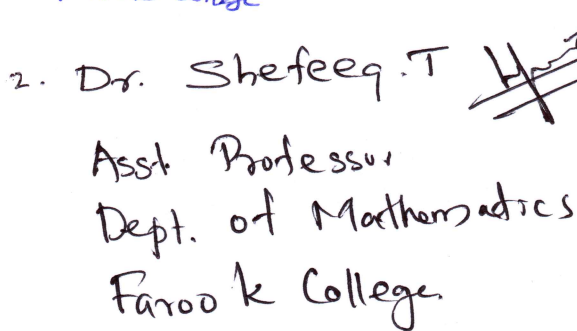 College
2. Dr. Shefeeq.T
Asst Professor
Dept. of Mathematics
Farook College.